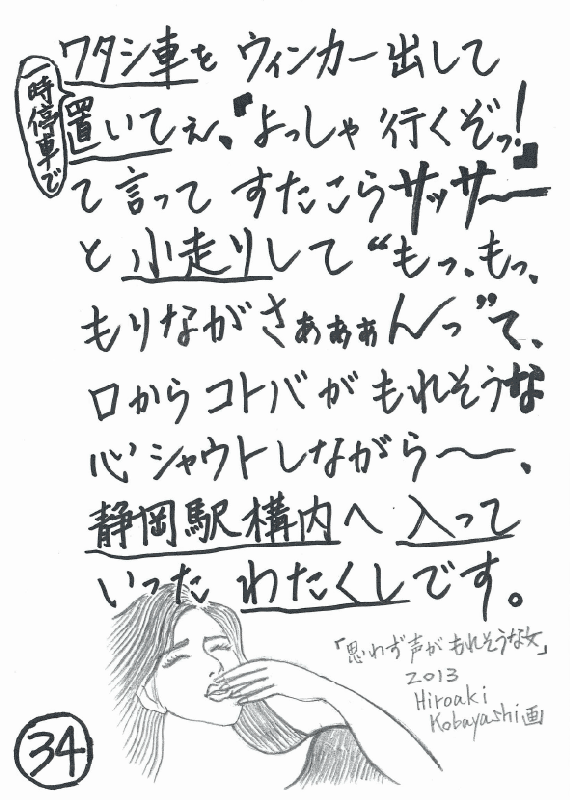 ワタシ車を ウィンカー出して
一時停車で
置いてぇ、『よっしゃ 行くぞっ!』
て言って すたこらサッサー
と小走りして “もっ、もっ、
もりながさぁぁぁんっ”て、
口からコトバがもれそうな
心シャウトしながら〜、
静岡駅構内へ 入って
いった わたくしです。
「思わず声がもれそうな女」
2013
Hiroaki
Kobayashi画
34